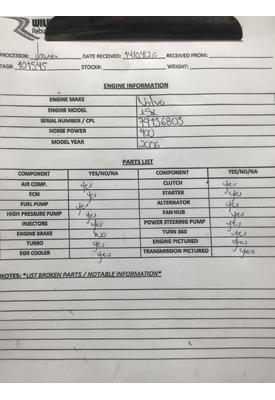 Rebu
PROCESSOR: Javier DATE RECEIVED: RECEIVED FROM:
TAG#: 101545 STOCK#: WEIGHT:
ENGINE INFORMATION
ENGINE MAKE Volvo
ENGINE MODEL
SERIAL NUMBER / CPL 79136805
HORSE POWER 400
MODEL YEAR 2006
PARTS LIST
COMPONENT YES/NO/NA COMPONENT YES/NO/NA
AIR COMP. yes CLUTCH yes
ECM yes STARTER yes
FUEL PUMP yes ALTERNATOR yes
HIGH PRESSURE PUMP yes FAN HUB yes
INJECTORS yes POWER STEERING PUMP yes
ENGINE BRAKE NO TURN 360 yes
TURBO yes ENGINE PICTURED yes
EGR COOLER yes TRANSMISSION PICTURED yes
NOTES: *LIST BROKEN PARTS / NOTABLE INFORMATION*